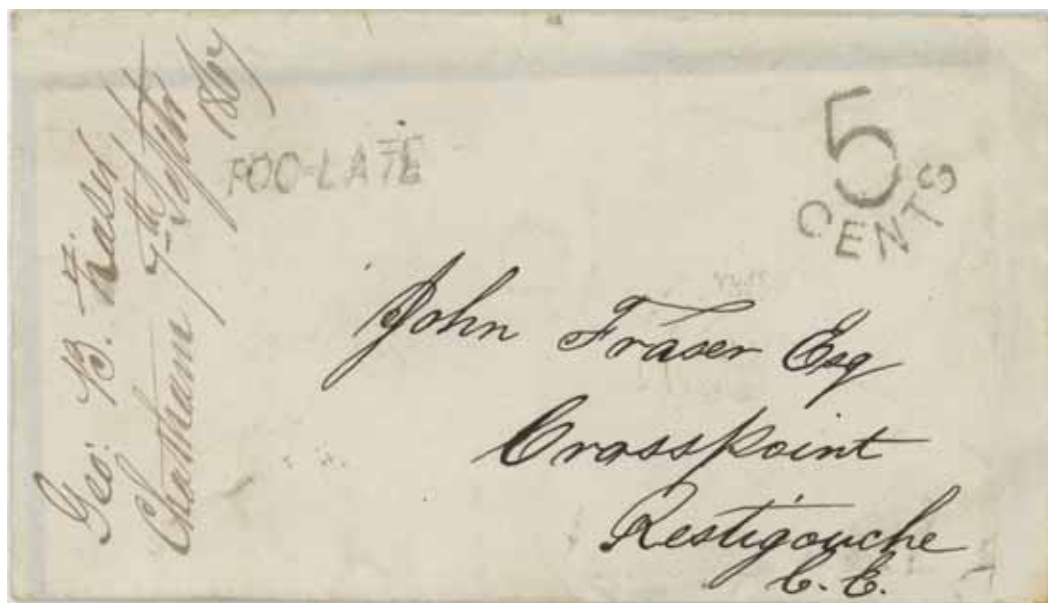 Geo: B. Fraser
Chatham 7th Septbr
1867
TOO-LATE
5
CENTS
John Fraser Esq
Crosspoint
Restigouche
C.E.